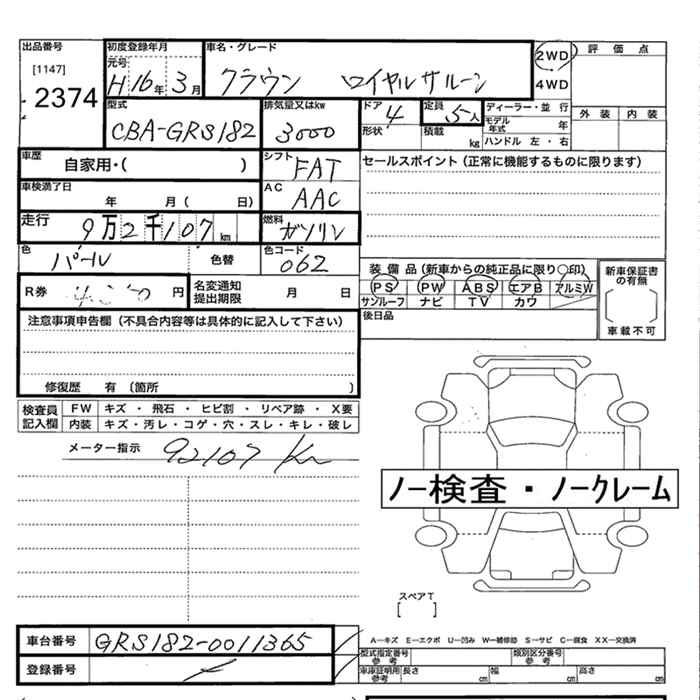 出品番号 初度登録年月 車名・グレード 評 価 点
[1147] 元号 2WD
2374 H16年 3月 クラウン ロイヤルサルーン 4WD
型式 排気量又はkw ドア 4 定員 5人 ディーラー・並 行 外 装 内 装
CBA-GRS182 3000 形状 積載 kg モデル年式 年
ハンドル 左・右
車歴 自家用・( ) シフト FAT セールスポイント (正常に機能するものに限ります)
車検満了日 年 月 ( 日) AC AAC
走行 9万2千107km 燃料 ガソリン
色 パール 色替 色コード 062
装 備 品 (新車からの純正品に限り○印) 新車保証書の有無
R券 円 名変通知提出期限 月 日 PS PW ABS エアB アルミW
サンルーフ ナビ TV カワ
車載不可
注意事項申告欄 (不具合内容等は具体的に記入して下さい) 後日品
修復歴 有 (箇所 )
検査員記入欄 FW キズ ・ 飛石 ・ ヒビ割 ・ リペア跡 ・ X要
内装 キズ・汚レ・コゲ・穴・スレ・キレ・破レ
メーター指示 92107 Km
ノー検査・ノークレーム
スペアT
[ ]
車台番号 GRS182-0011365 A―キズ E―エクボ U―凹み W―補修跡 S―サビ C―腐食 XX―交換済
型式指定番号 参考 類別区分番号 参考
登録番号 車庫証明用 参考 長さ cm 幅 cm 高さ cm